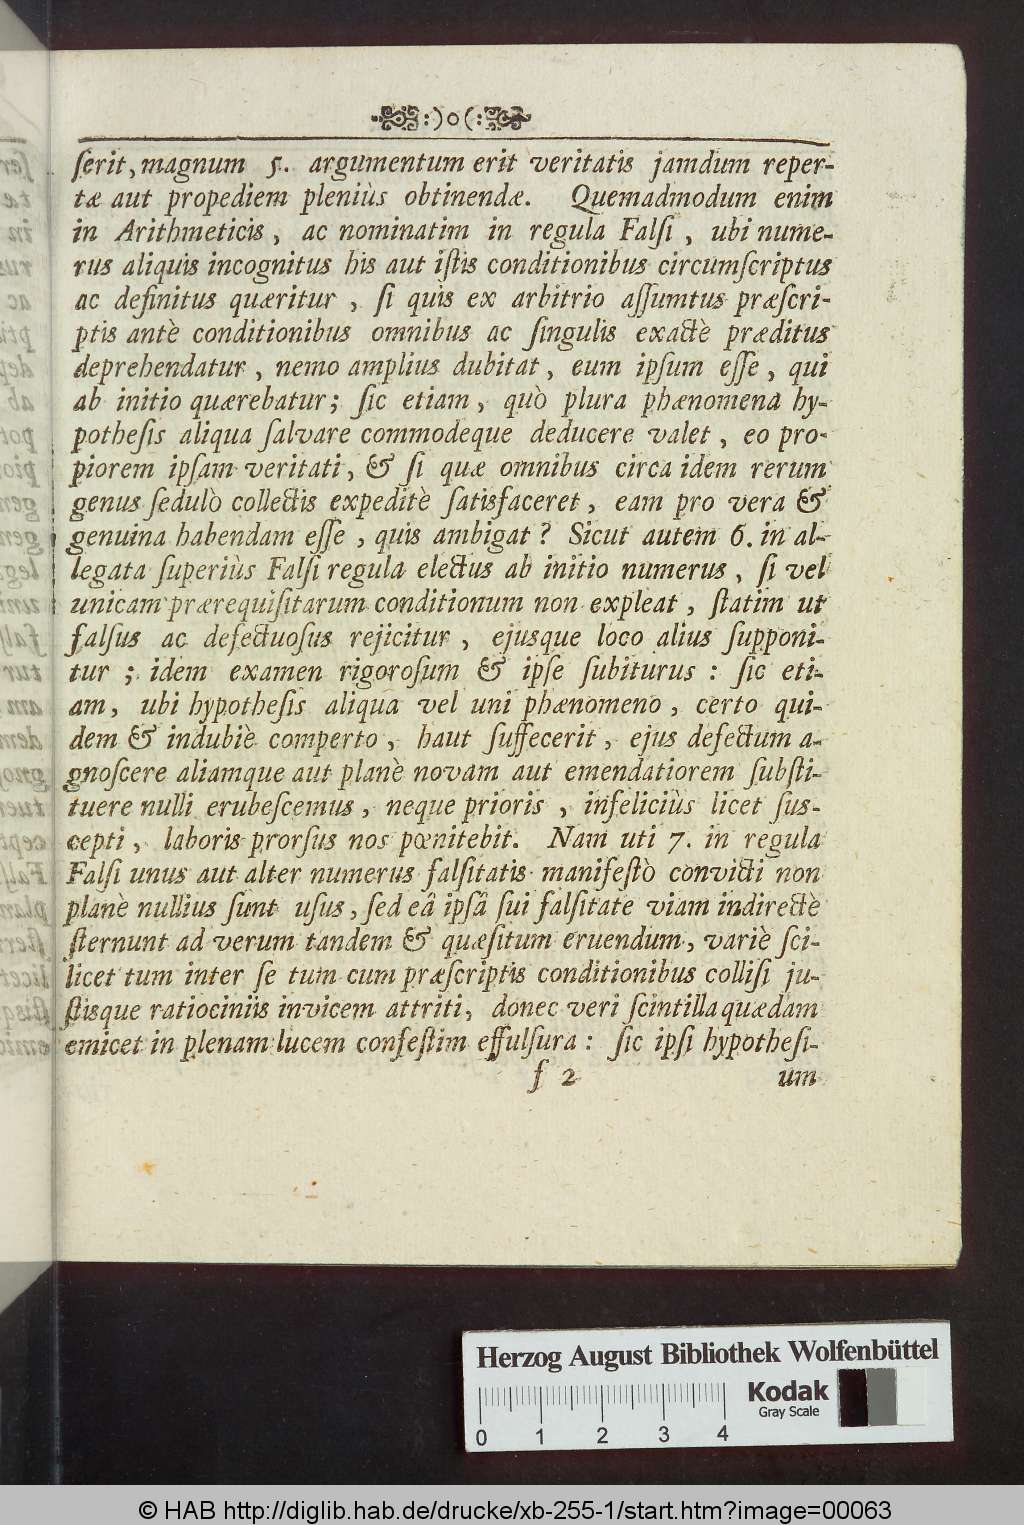 :)o(:
ſerit, magnum 5. argumentum erit veritatis jamdum reper-
tæ aut propediem pleniùs obtinendæ. Quemadmodum enim
in Arithmeticis, ac nominatim in regula Falſi, ubi nume-
rus aliquis incognitus his aut iſtis conditionibus circumſcriptus
ac definitus quæritur, ſi quis ex arbitrio aſſumtus præſcri-
ptis antè conditionibus omnibus ac ſingulis exactè præditus
deprehendatur, nemo amplius dubitat, eum ipſum eſſe, qui
ab initio quærebatur; ſic etiam, quò plura phænomena hy-
potheſis aliqua ſalvare commodeque deducere valet, eo pro-
piorem ipſam veritati, & ſi quæ omnibus circa idem rerum
genus ſedulò collectis expeditè ſatisfaceret, eam pro vera &
genuina habendam eſſe, quis ambigat? Sicut autem 6. in al-
legata ſuperiùs Falſi regula electus ab initio numerus, ſi vel
unicam prærequiſitarum conditionum non expleat, ſtatim ut
falſus ac defectuoſus rejicitur, ejusque loco alius ſupponi-
tur; idem examen rigoroſum & ipſe ſubiturus: ſic eti-
am, ubi hypotheſis aliqua vel uni phænomeno, certo qui-
dem & indubiè comperto, haut ſuffecerit, ejus defectum a-
gnoſcere aliamque aut planè novam aut emendatiorem ſubſti-
tuere nulli erubeſcemus, neque prioris, infeliciùs licet ſus-
cepti, laboris prorſus nos pœnitebit. Nam uti 7. in regula
Falſi unus aut alter numerus falſitatis manifeſtò convicti non
planè nullius ſunt uſus, ſed eâ ipſâ ſui falſitate viam indirectè
ſternunt ad verum tandem & quæſitum eruendum, variè ſci-
licet tum inter ſe tum cum præſcriptis conditionibus colliſi ju-
ſtisque ratiociniis invicem attriti, donec veri ſcintilla quædam
emicet in plenam lucem confeſtim effulſura: ſic ipſi hypotheſi-
f 2 um
Herzog August Bibliothek Wolfenbüttel
Kodak
Gray Scale
0 1 2 3 4
© HAB http://diglib.hab.de/drucke/xb-255-1/start.htm?image=00063